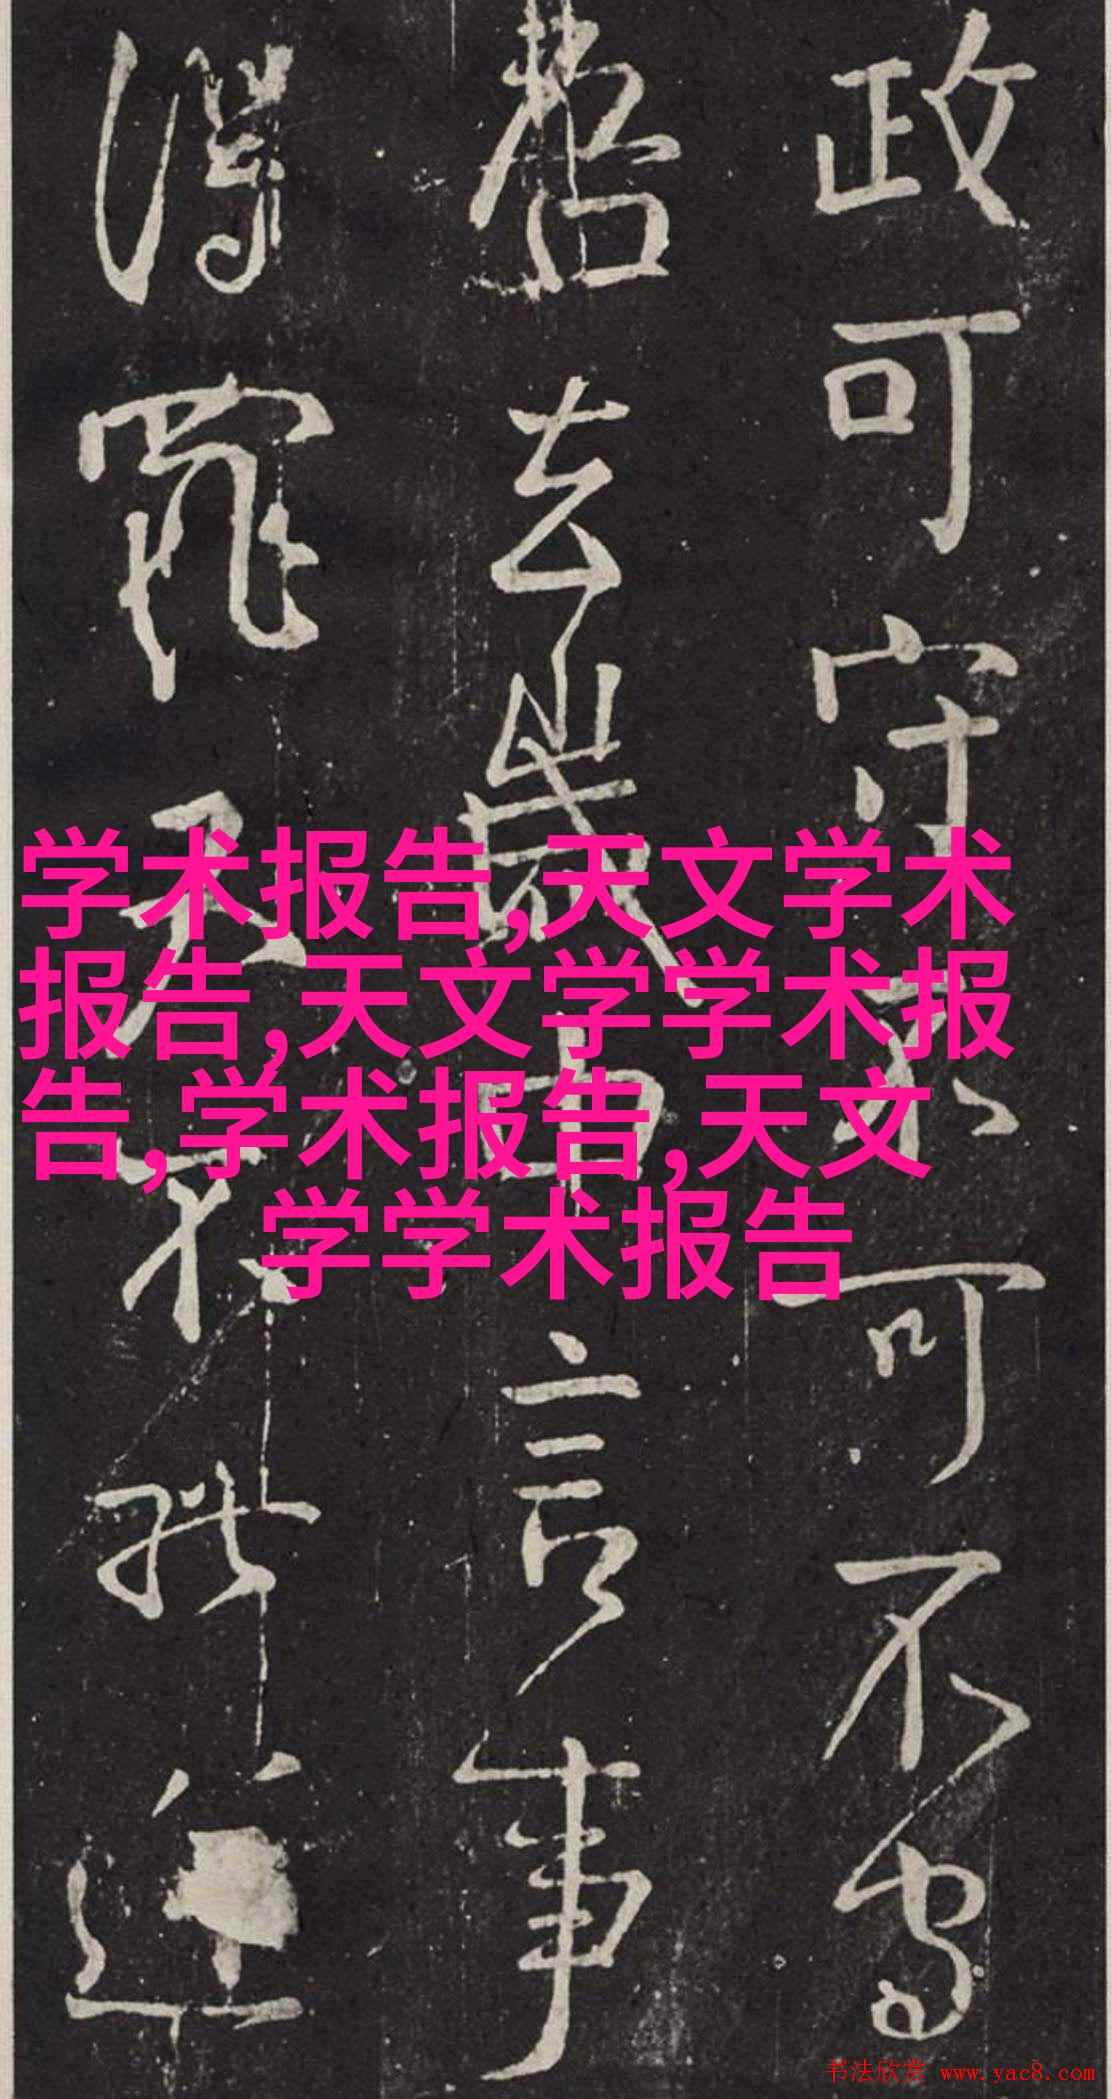 政可守不可不守
吾去歲中言事
得罪又不能逆
学术报告,天文学术
报告,天文学学术报
告,学术报告,天文
学学术报告
书法欣赏 www.yac8.com